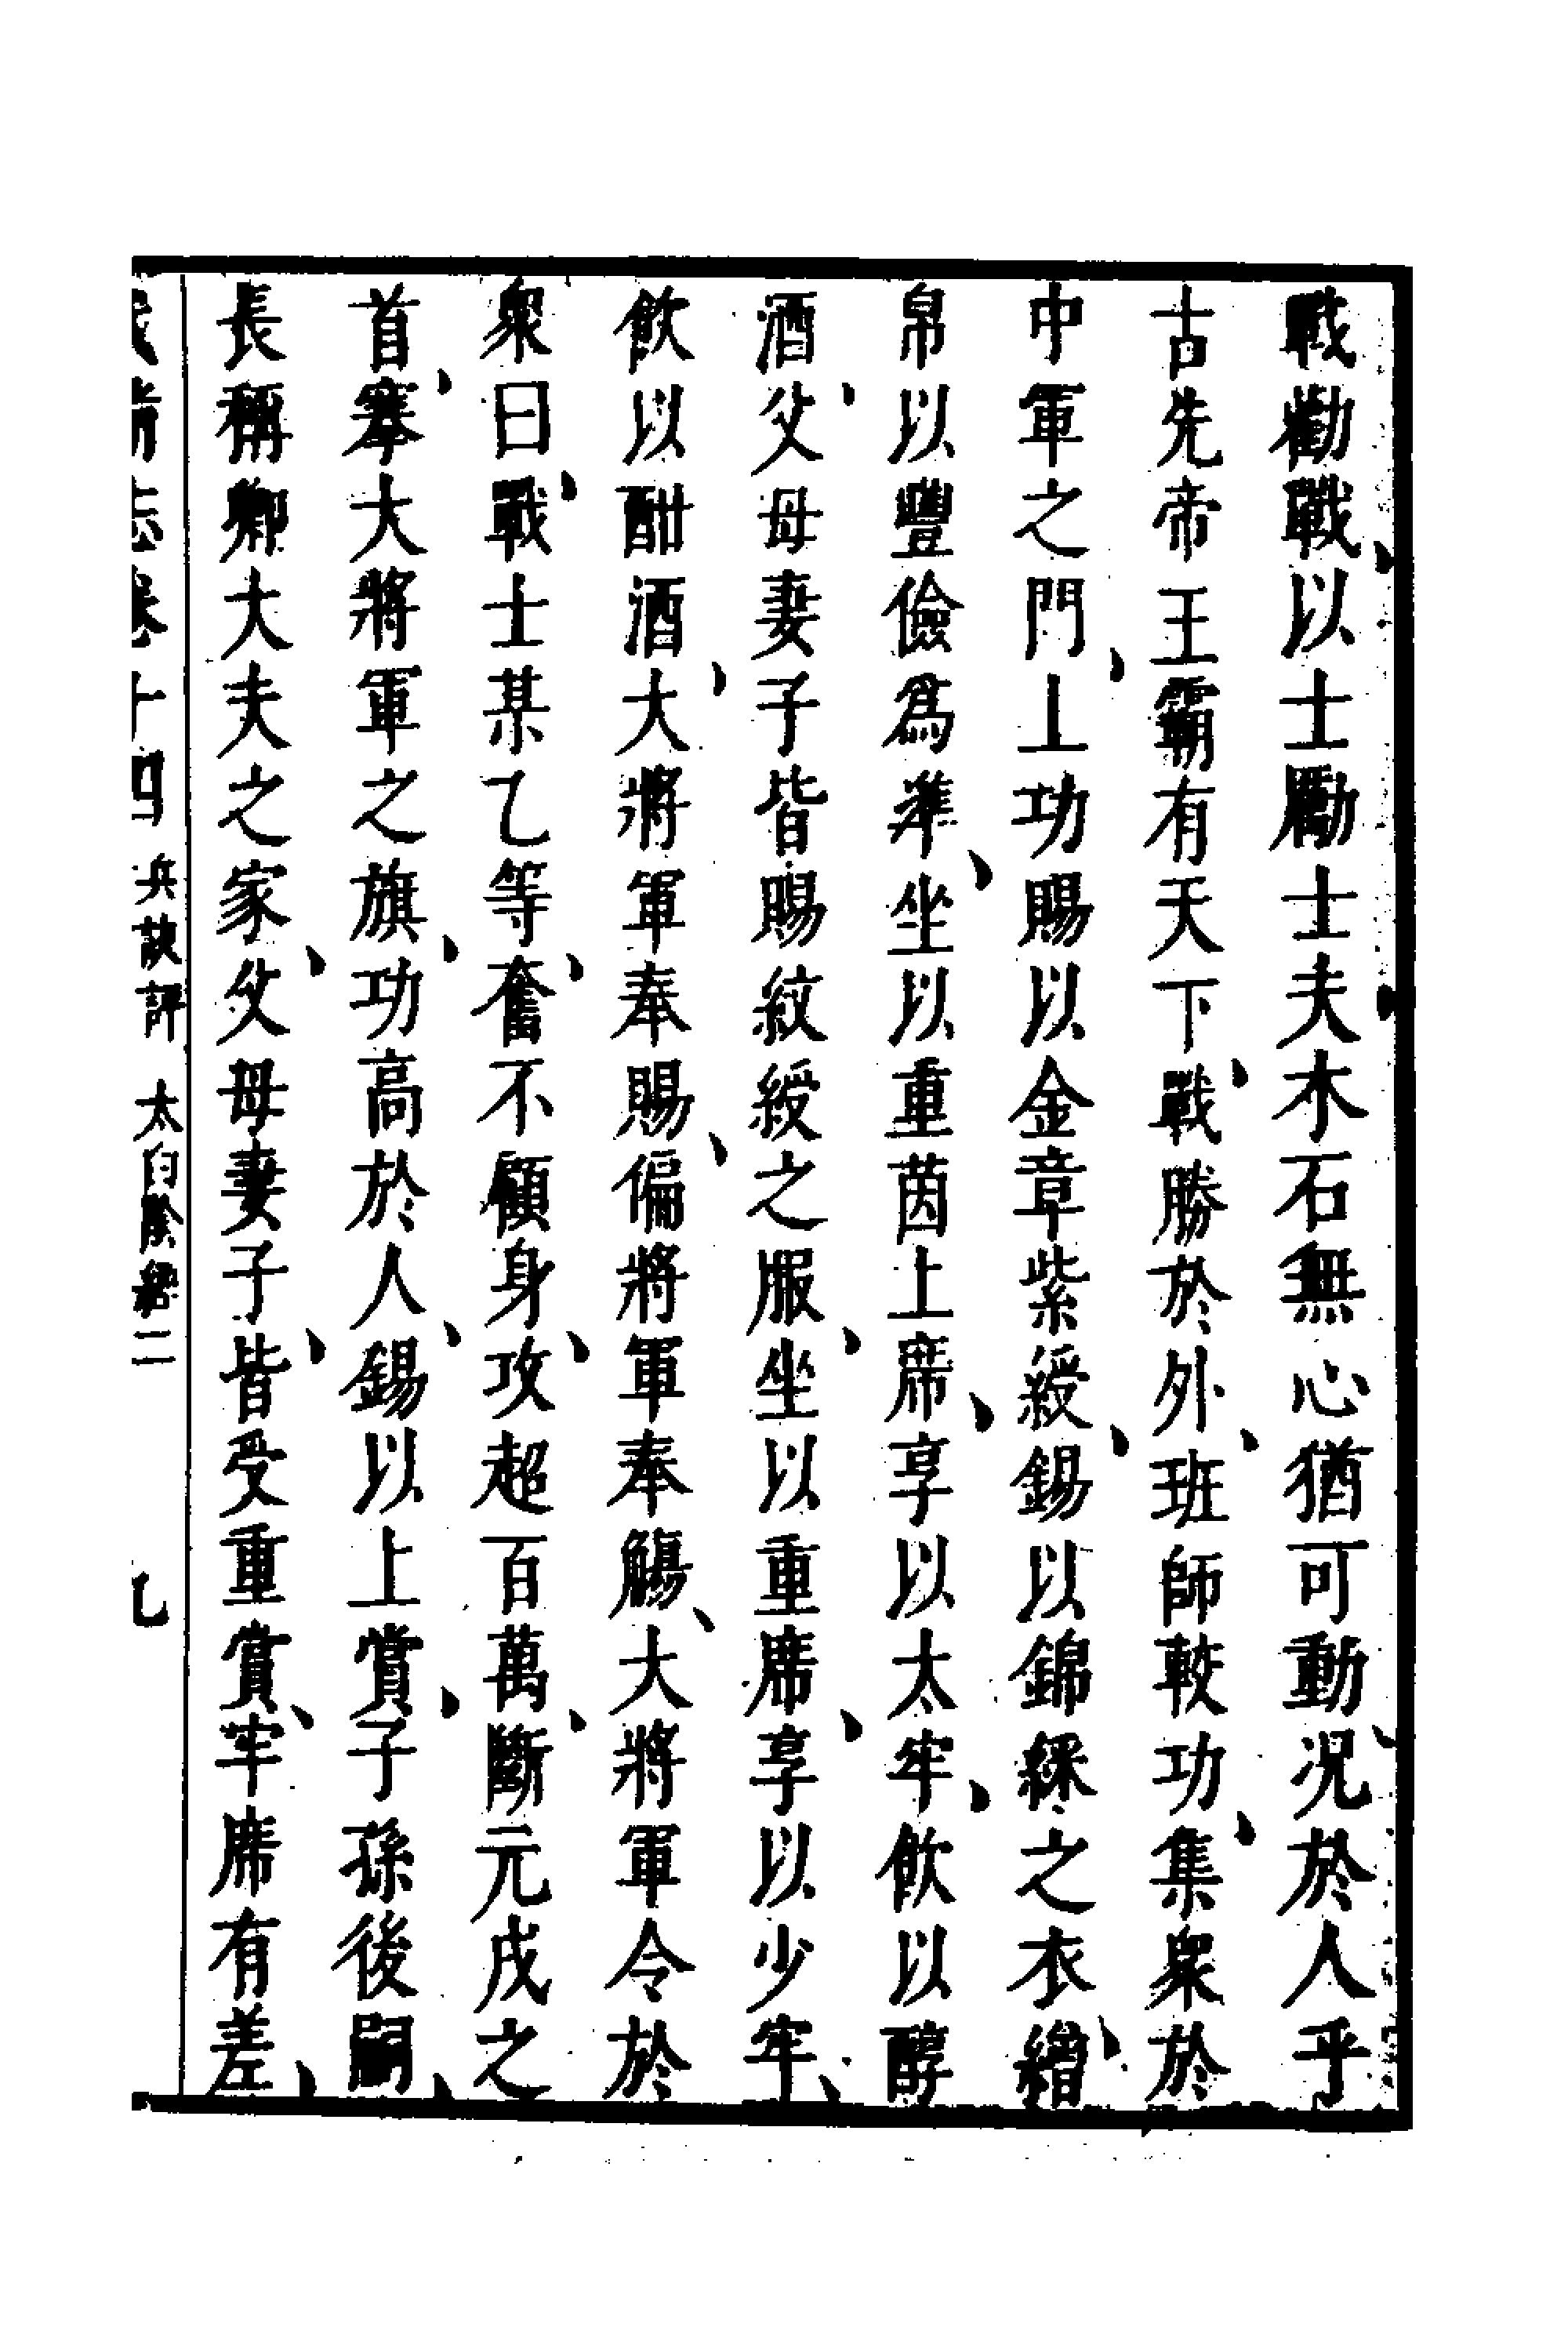 戰勸戰以士勵士夫木石無心猶可動况於人乎
古先帝王霸有天下戰勝於外班師較功集衆於
中軍之門上功賜以金章紫綬錫以錦綵之衣繒
帛以豐儉爲準坐以重茵上席享以太牢飲以醇
酒父母妻子皆賜紋綬之服坐以重席享以少牢
飲以酣酒大將軍奉賜偏將軍奉觴大將軍令於
衆曰戰士某乙等奮不顧身攻超百萬斷元戎之
首搴大將軍之旗功高於人錫以上賞子孫後嗣
長稱卿大夫之家父母妻子皆受重賞牢席有差
武備志卷十四 兵訣評 太白陰經二 九